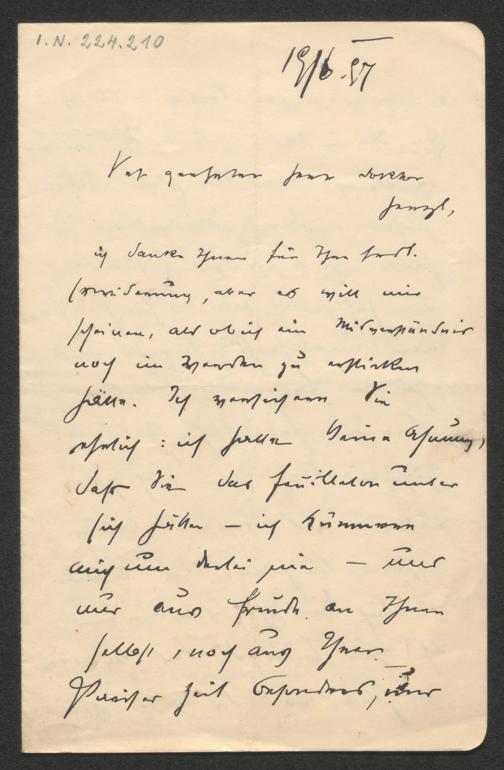 I.N. 224.210
19/6. 97
Sehr geehrter Herr Doctor
Herzl,
ich danke Ihnen für Ihre frdl.
Erwiderung, aber es will mir
scheinen, als ob ich ein Misverständnis
noch im Werden zu ersticken
hätte. Ich versichere Sie
ehrlich: ich hatte keine Ahnung,
dass Sie das Feuilleton unter
sich hätten – ich kümmere
mich um derlei nie – und
nur aus Freude an Ihnen
selbst, noch aus Ihrer
Pariser Zeit besonders, und